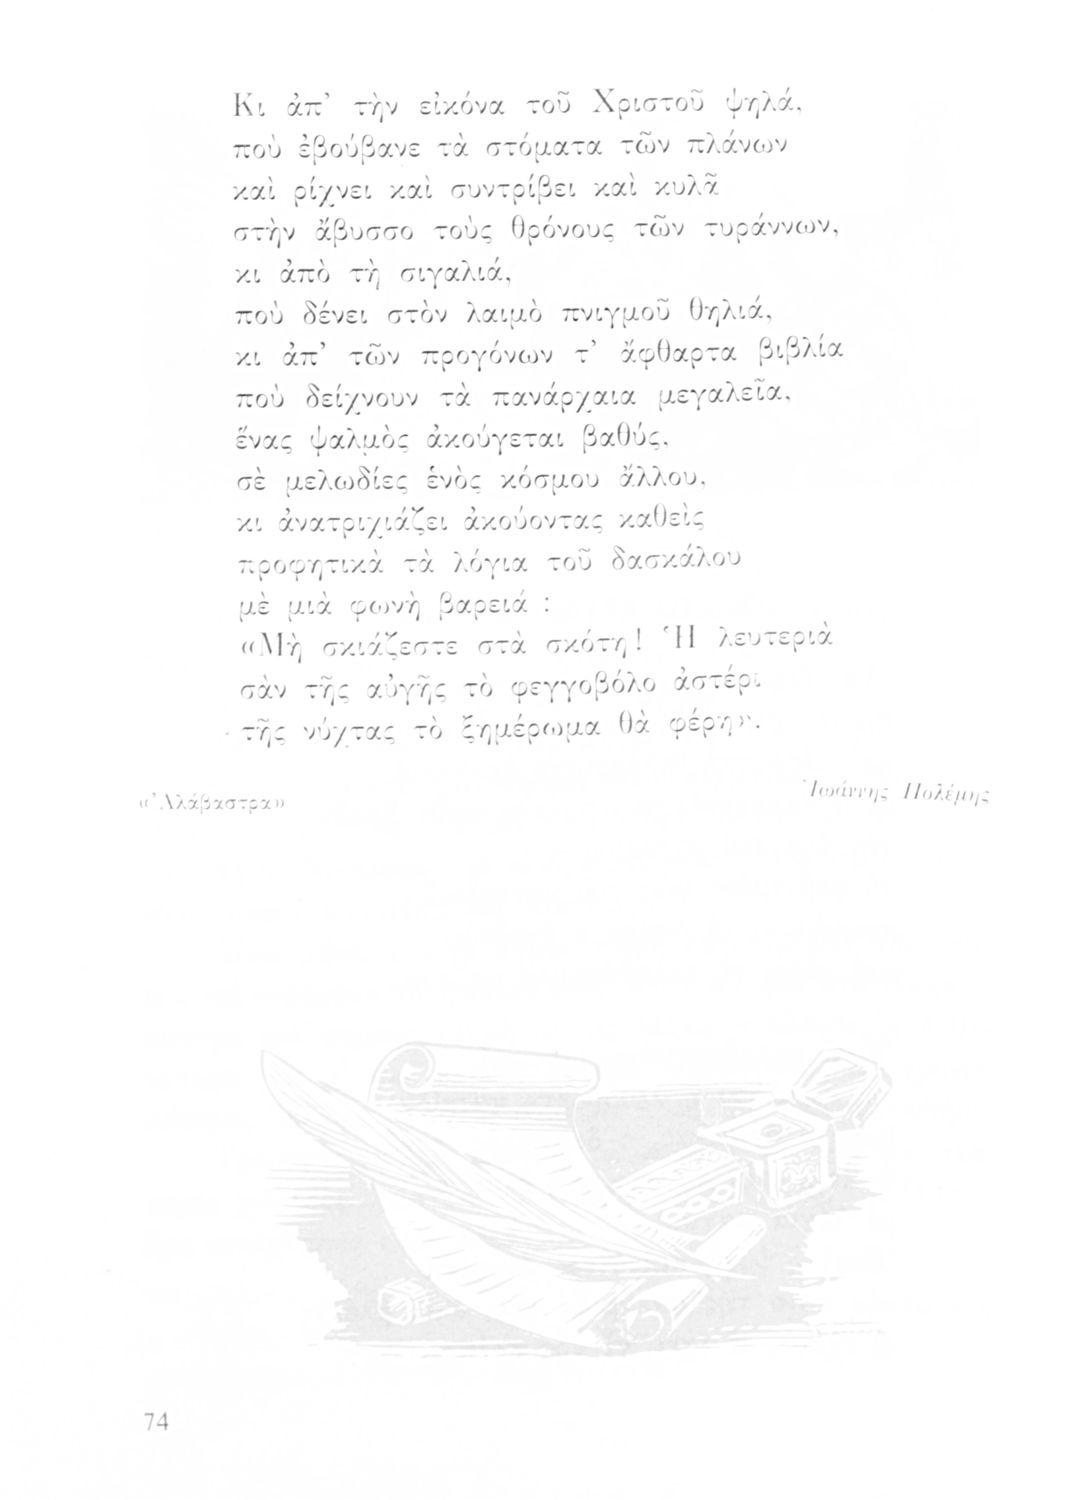 Κι ἀπ' τὴν εἰκόνα τοῦ Χριστοῦ ψηλά,
ποὺ ἐβούβανε τὰ στόματα τῶν πλάνων
καὶ ρίχνει καὶ συντρίβει καὶ κυλᾶ
στὴν ἄβυσσο τοὺς θρόνους τῶν τυράννων,
κι ἀπὸ τὴ σιγαλιά,
ποὺ δένει στὸν λαιμὸ πνιγμοῦ θηλιά,
κι ἀπ' τῶν προγόνων τ' ἄφθαρτα βιβλία
ποὺ δείχνουν τὰ πανάρχαια μεγαλεῖα,
ἕνας ψαλμὸς ἀκούγεται βαθύς,
σὲ μελωδίες ἑνὸς κόσμου ἄλλου,
κι ἀνατριχιάζει ἀκούοντας καθεὶς
προφητικὰ τὰ λόγια τοῦ δασκάλου
μὲ μιὰ φωνὴ βαρειά :
«Μὴ σκιάζεστε στὰ σκότη! Ἡ λευτεριὰ
σὰν τῆς αὐγῆς τὸ φεγγοβόλο ἀστέρι
τῆς νύχτας τὸ ξημέρωμα θὰ φέρη».
«Ἀλάβαστρα»
Ἰωάννης Πολέμης
74